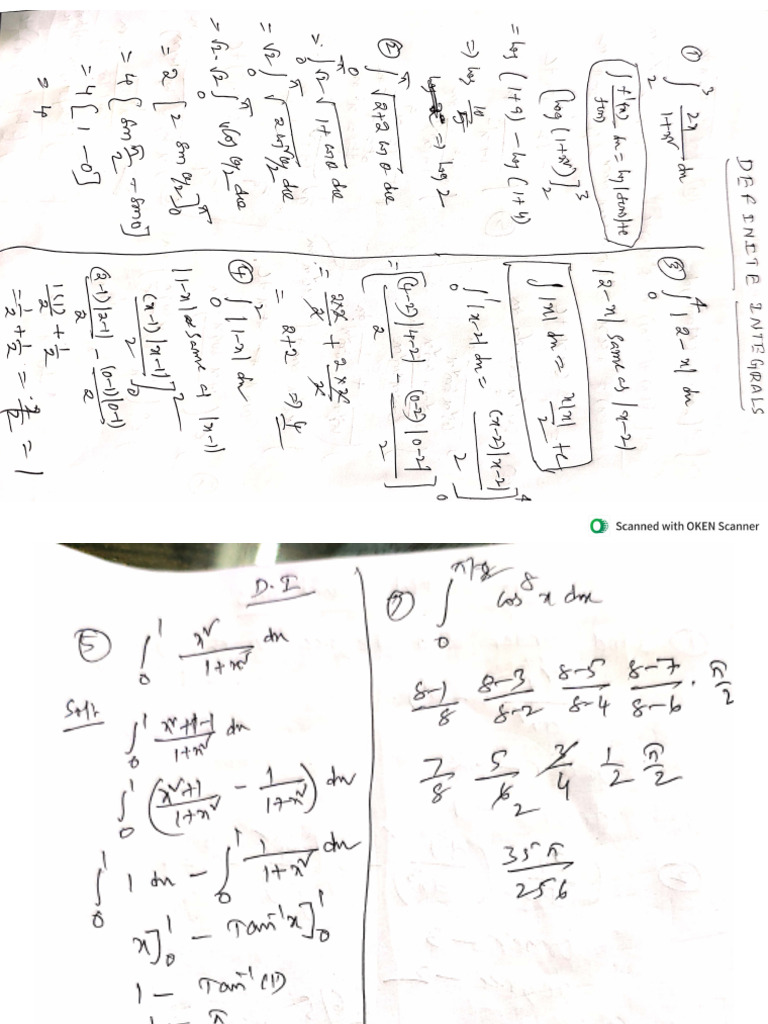 DEFINITE INTEGRALS
① ∫₂³ 2x/(1+x²) dx
∫ f'(x)/f(x) dx = log|f(x)|+c
[log(1+x²)]₂³
= log(1+9) - log(1+4)
=> log 10/5
=> log 2
② ∫₀^π √(2+2cosθ) dθ
> ∫₀^π √2 √(1+cosθ) dθ
= √2 ∫₀^π √(2cos²θ/2) dθ
> √2·√2 ∫₀^π √cos θ/2 dθ
= 2 [2 sin θ/2]₀^π
= 4 [sin π/2 - sin 0]
= 4 [1 - 0]
= 4
③ ∫₀⁴ |2-x| dx
|2-x| same as |x-2|
∫ |x| dx = x|x|/2 + c
∫₀⁴ |x-2| dx = (x-2)|x-2|/2 ]₀⁴
= [ (4-2)|4-2|/2 - (0-2)|0-2|/2 ]
= 2×2/2 + 2×2/2
= 2+2 => 4
④ ∫₀² |1-x| dx
|1-x| same as |x-1|
(x-1)|x-1|/2 ]₀²
(2-1)|2-1|/2 - (0-1)|0-1|/2
1(1)/2 + 1/2
= 1/2 + 1/2 = 2/2 = 1
Scanned with OKEN Scanner
D.I
⑤ ∫₀¹ x²/(1+x²) dx
Soln
∫₀¹ (x²+1-1)/(1+x²) dx
∫₀¹ ((x²+1)/(1+x²) - 1/(1+x²)) dx
∫₀¹ 1 dx - ∫₀¹ 1/(1+x²) dx
x]₀¹ - Tan⁻¹x]₀¹
1 - Tan⁻¹(1)
1 - π
⑦ ∫₀^π/2 cos⁸ x dx
8-1/8 8-3/8-2 8-5/8-4 8-7/8-6 · π/2
7/8 5/6 2 3/4 1/2 π/2
35π/256